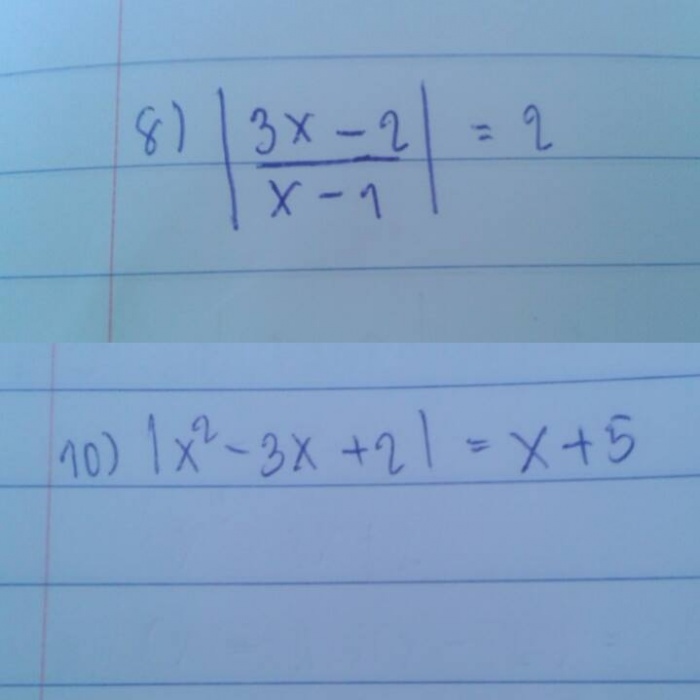 8) |3x - 2 / x - 1| = 2
10) |x² - 3x + 2| = x + 5